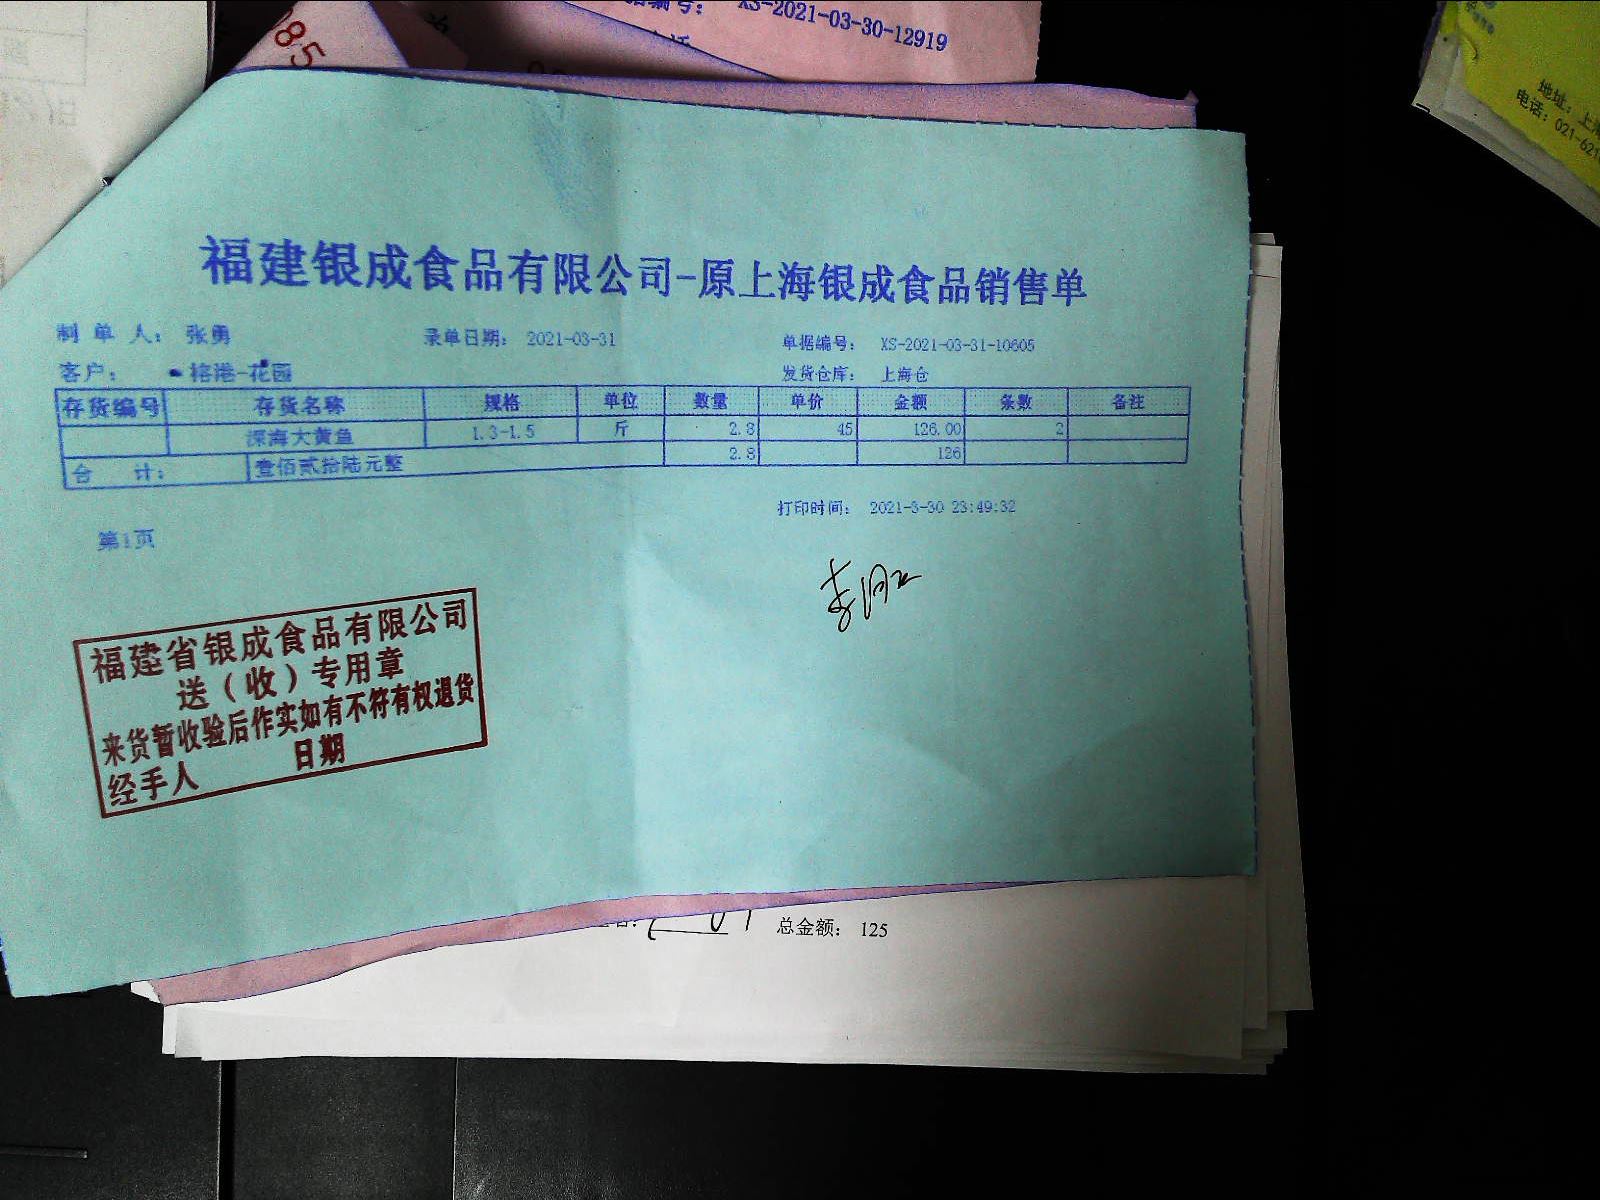 XS-2021-03-30-12919
085
地址：上海
电话：021-621
福建银成食品有限公司-原上海银成食品销售单
制 单 人： 张勇 录单日期： 2021-03-31 单据编号： XS-2021-03-31-10605
客户： 榕港-花园 发货仓库： 上海仓
存货编号 存货名称 规格 单位 数量 单价 金额 条数 备注
深海大黄鱼 1.3-1.5 斤 2.8 45 126.00 2
合 计： 壹佰贰拾陆元整 2.8 126
打印时间： 2021-3-30 23:49:32
第1页
福建省银成食品有限公司
送（收）专用章
来货暂收验后作实如有不符有权退货
经手人 日期
总金额： 125